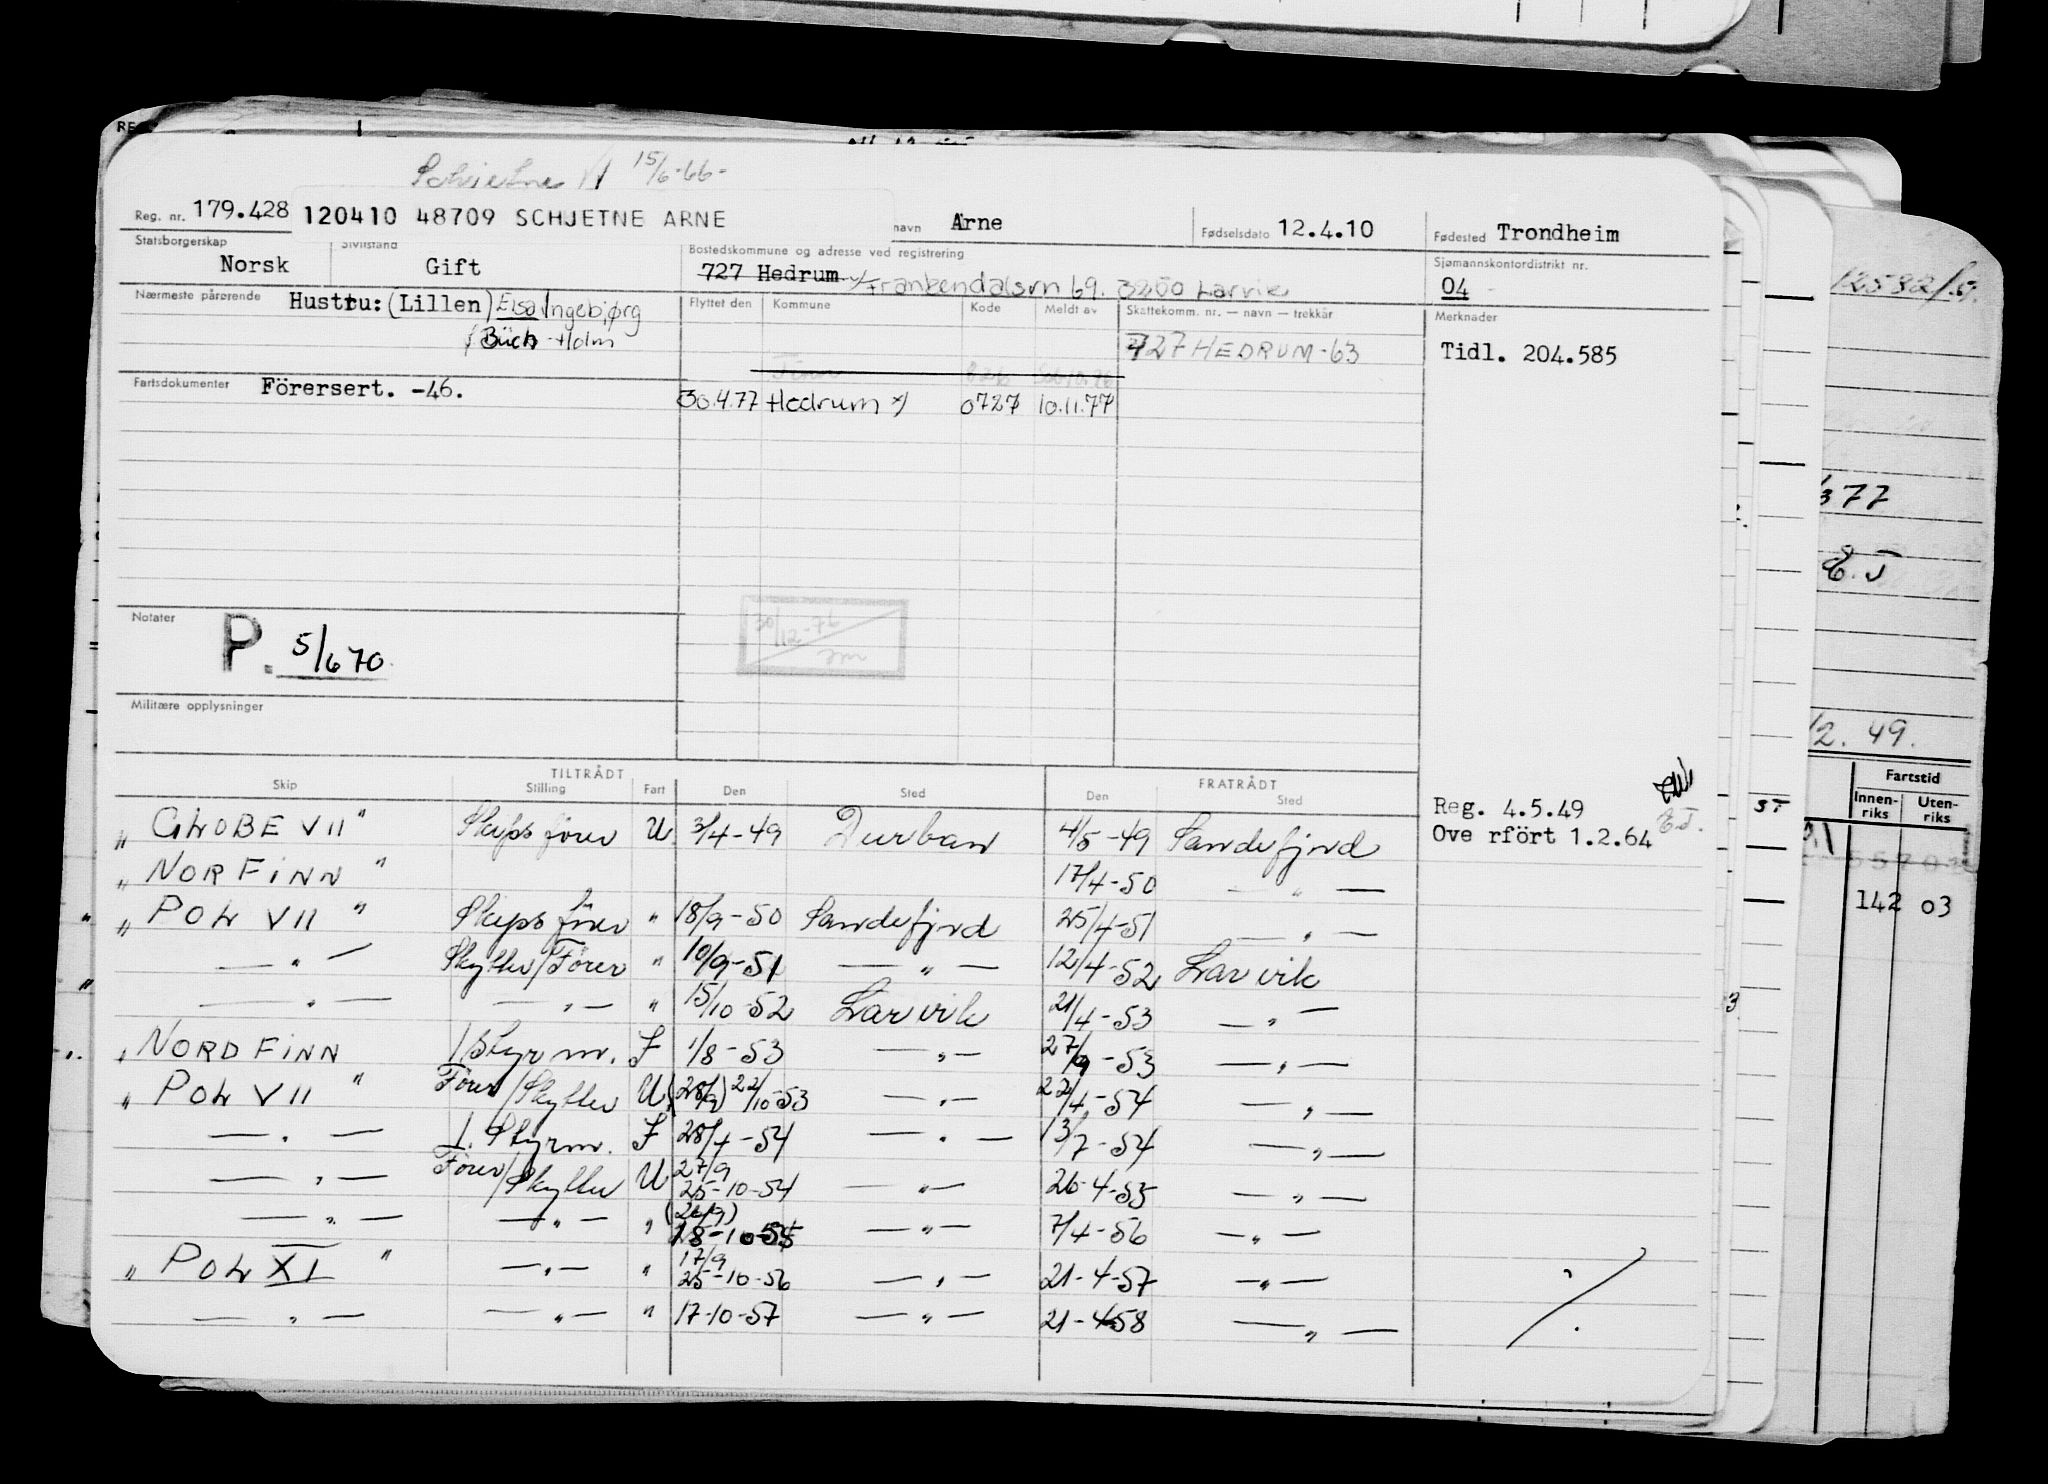 Schjetne A 15/6-66-
Reg. nr. 179.428 120410 48709 SCHJETNE ARNE navn Arne Fødselsdato 12.4.10 Fødested Trondheim
Statsborgerskap Norsk Sivilstand Gift Bostedskommune og adresse ved registrering 727 Hedrum x/ Frankendalsvn 69. 3250 Larvik Sjømannskontordistrikt nr. 04
Nærmeste pårørende Hustru: (Lillen) Elsa Ingebjørg
f. Büch-Holm
Flyttet den Kommune Kode Meldt av Skattekomm. nr. — navn — trekkår Merknader
727 HEDRUM-63 Tidl. 204.585
Fartsdokumenter Förersert. -46.
30.4.77 Hedrum x/ 0727 10.11.77
Notater P. 5/6 70
30/12-76
Militære opplysninger
TILTRÅDT FRATRÅDT
Skip Stilling Fart Den Sted Den Sted
Reg. 4.5.49
Ove rfört 1.2.64 E.T.
" GLOBE VII " Skipsförer U 3/4-49 Durban 4/5-49 Sandefjord
" NORFINN " 17/4-50 — " —
" POL VII " Skipsförer " 18/9-50 Sandefjord 25/4-51 — " —
— " — Skytter/Förer " 10/9-51 — " — 12/4-52 Larvik
— " — — " — " 15/10-52 Larvik 21/4-53 — " —
" NORDFINN 1 Styrm. I 1/8-53 — " — 27/9-53 — " —
" POL VII " Förer/Skytter U (28/9) 22/10-53 — " — 22/4-54 — " —
— " — 1. Styrm. I 28/4-54 — " — 13/7-54 — " —
— " — Förer/Skytter U 27/9 25-10-54 — " — 26-4-55 — " —
— " — — " — " (26/9) 18-10-55 — " — 7/4-56 — " —
" POL XI " — " — " 17/9 25-10-56 — " — 21-4-57 — " —
— " — — " — " 17-10-57 — " — 21-4-58 — " —
377
E.T
/2. 49.
Fartstid
Innenriks Utenriks
142 03